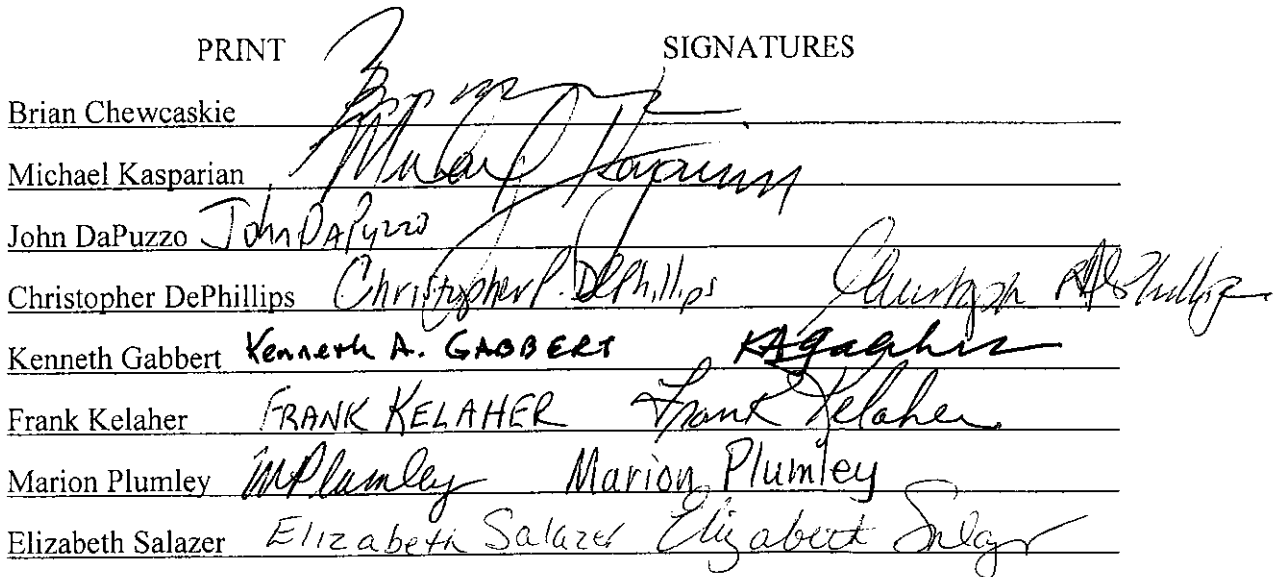 PRINT SIGNATURES
Brian Chewcaskie
Michael Kasparian
John DaPuzzo John DAPuzzo
Christopher DePhillips Christopher P. DePhillips
Kenneth Gabbert Kenneth A. GABBERT
Frank Kelaher FRANK KELAHER Frank Kelaher
Marion Plumley MPlumley Marion Plumley
Elizabeth Salazer Elizabeth Salazer Elizabeth